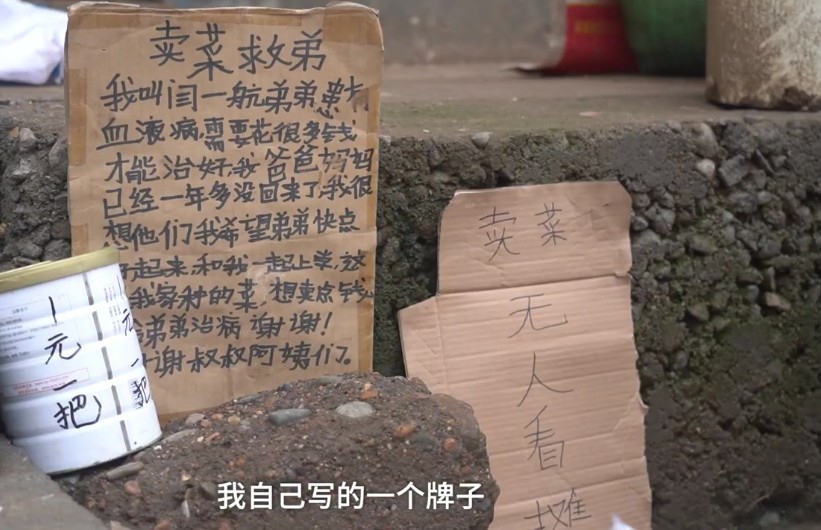 卖菜救弟
我叫闫一航弟弟患
血液病需要花很多钱
才能治好.我爸爸妈妈
已经一年多没回来了.我很
想他们我希望弟弟快点
起来.和我一起上学.这
我家种的菜.想卖点钱
弟弟治病谢谢!
谢叔叔阿姨们。
1元一把
1元一把
卖菜
无
人
看
摊
我自己写的一个牌子